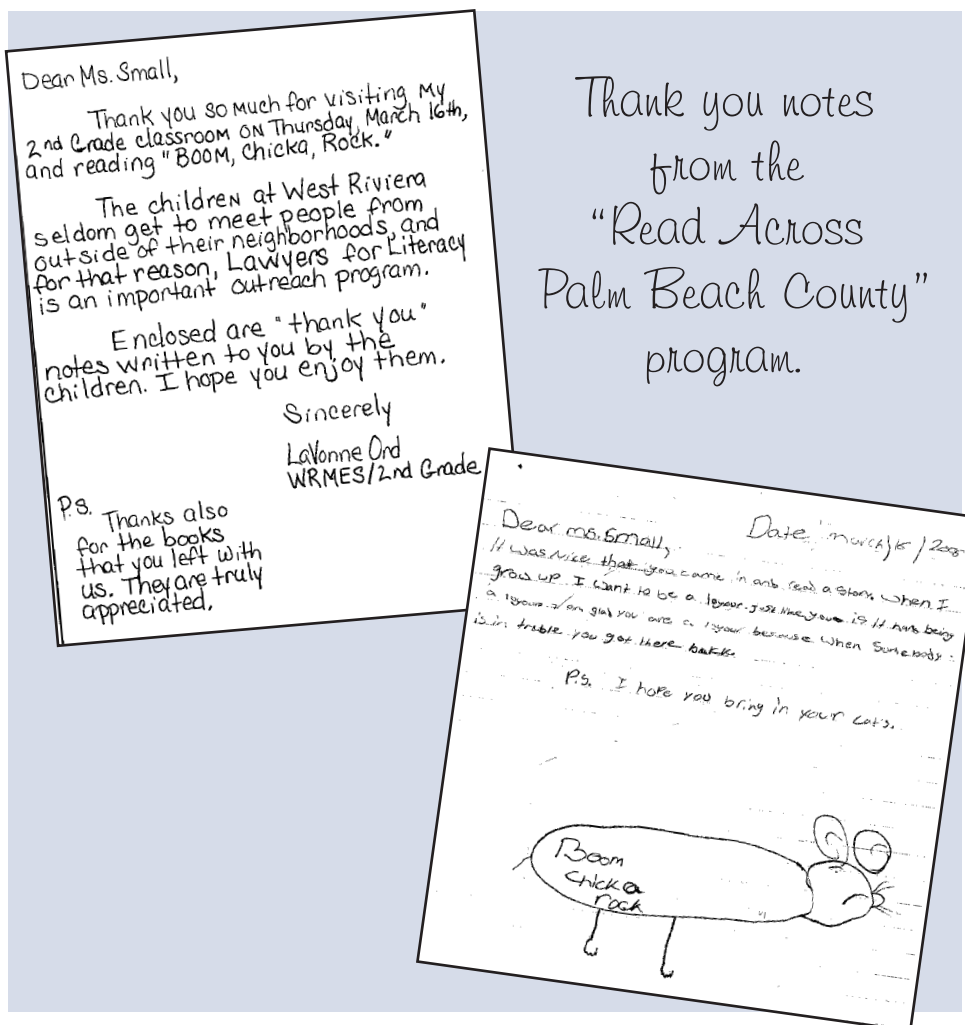 Dear Ms. Small,
Thank you so much for visiting my
2nd Grade classroom on Thursday, March 16th,
and reading "Boom, Chicka, Rock."
The children at West Riviera
seldom get to meet people from
outside of their neighborhoods, and
for that reason, Lawyers for Literacy
is an important outreach program.
Enclosed are "thank you"
notes written to you by the
children. I hope you enjoy them.
Sincerely
LaVonne Ord
WRMES/2nd Grade
P.S. Thanks also
for the books
that you left with
us. They are truly
appreciated.
Thank you notes
from the
“Read Across
Palm Beach County”
program.
Dear ms.small,
Date march
It was nice that you came in and read a story. When I
grow up I want to be a just like you is it hard being
a I am glad you are a because when Somebody
is in you got there
P.s. I hope you bring in your cats.
Boom
Chicka
rock